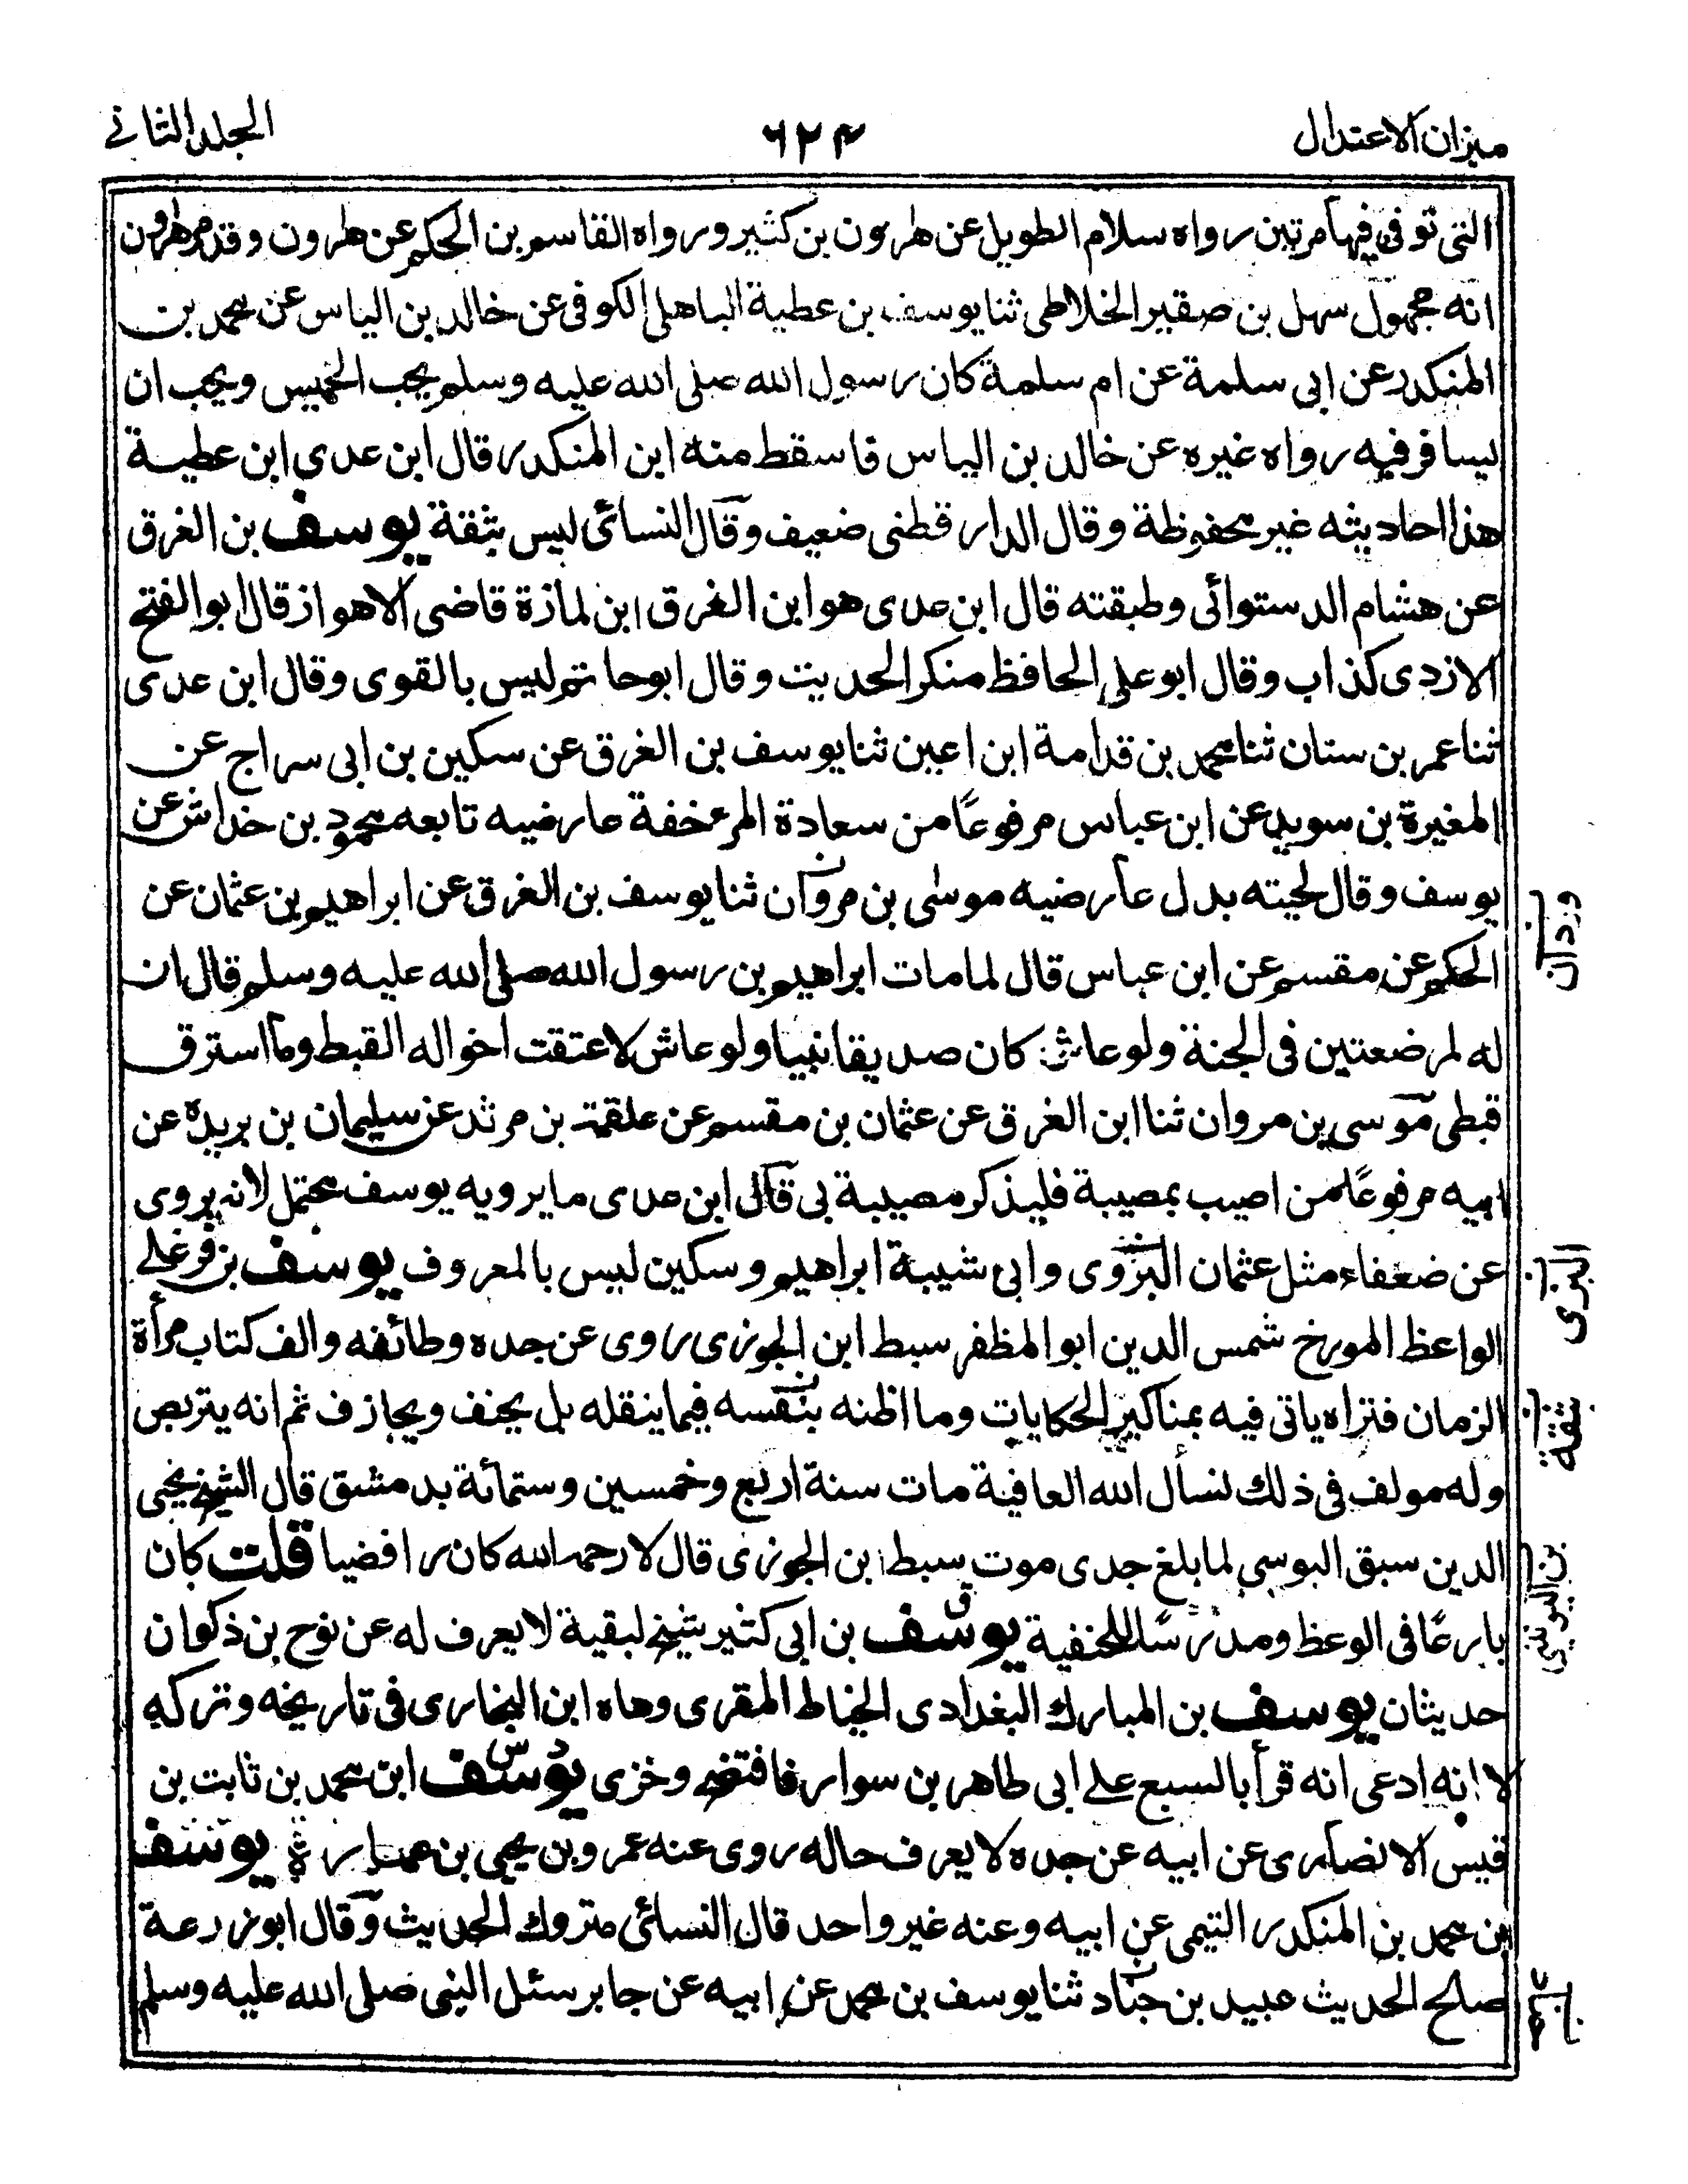 ميزان الاعتدال
٦٢٤
المجلد الثانى
التى توفى فيها مرتين رواه سلام الطويل عن هارون بن كثير ورواه القاسم بن الحكم عن هارون وقد مر هارون
انه مجهول سهل بن صقير الخلاطى ثنا يوسف بن عطية الباهلى الكوفى عن خالد بن الياس عن محمد بن
المنكدر عن ابى سلمة عن ام سلمة كان رسول الله صلى الله عليه وسلم يحب الخميس ويحب ان
يسافر فيه رواه غيره عن خالد بن الياس فاسقط منه ابن المنكدر قال ابن عدى ابن عطية
هذا احاديثه غير محفوظة وقال الدارقطنى ضعيف وقال النسائى ليس بثقة يوسف بن الغرق
عن هشام الدستوائى وطبقته قال ابن عدى هو ابن الغرق ابن لمازة قاضى الاهواز قال ابو الفتح
الازدى كذاب وقال ابو على الحافظ منكر الحديث وقال ابو حاتم ليس بالقوى وقال ابن عدى
ثنا عمر بن سنان ثنا محمد بن قدامة ابن اعين ثنا يوسف بن الغرق عن سكين بن ابى سراج عن
المغيرة بن سويد عن ابن عباس مرفوعًا من سعادة المرء خفة عارضيه تابعه محمود بن خداش عن
يوسف وقال لحيته بدل عارضيه موسى بن مروان ثنا يوسف بن الغرق عن ابراهيم بن عثمان عن
الحكم عن مقسم عن ابن عباس قال لما مات ابراهيم بن رسول الله صلى الله عليه وسلم قال ان
له لمرضعتين فى الجنة ولو عاش كان صديقا نبيا ولو عاش لاعتقت اخواله القبط وما استرق
قبطى موسى بن مروان ثنا ابن الغرق عن عثمان بن مقسم عن علقمة بن مرثد عن سليمان بن بريدة عن
ابيه مرفوعًا من اصيب بمصيبة فليذكر مصيبة بى قال ابن عدى ما يرويه يوسف محتمل لانه يروى
عن ضعفاء مثل عثمان البزوى وابى شيبة ابراهيم وسكين ليس بالمعروف يوسف بن فرغلى
الواعظ المورخ شمس الدين ابو المظفر سبط ابن الجوزى روى عن جده وطائفه والف كتاب مرأة
الزمان فتراه ياتى فيه بمناكير الحكايات وما اظنه بنفسه فيما ينقله بل يجنف ويجازف ثم انه يتربص
وله مولف فى ذلك نسأل الله العافية مات سنة اربع وخمسين وستمائة بدمشق قال الشيخ يحيى
الدين سبق البوسى لما بلغ جدى موت سبط بن الجوزى قال لا رحمه الله كان رافضيا قلت كان
بارعًا فى الوعظ ومدرسًا للحنفية يوسف بن ابى كثير شيخ لبقية لا يعرف له عن نوح بن ذكوان
حديثان يوسف بن المبارك البغدادى الخياط المقرى وهاه ابن البخارى فى تاريخه وتركه
لا انه ادعى انه قرأ بالسبع على ابى طاهر بن سوار فافتضح وخزى يوسف ابن محمد بن ثابت بن
قيس الانصارى عن ابيه عن جده لا يعرف حاله روى عنه عمرو بن يحيى بن عمارة يوسف
بن محمد بن المنكدر التيمى عن ابيه وعنه غير واحد قال النسائى متروك الحديث وقال ابو زرعة
صالح الحديث عبيد بن جناد ثنا يوسف بن محمد عن ابيه عن جابر سئل النبى صلى الله عليه وسلم
وردان
البزى
بثقة